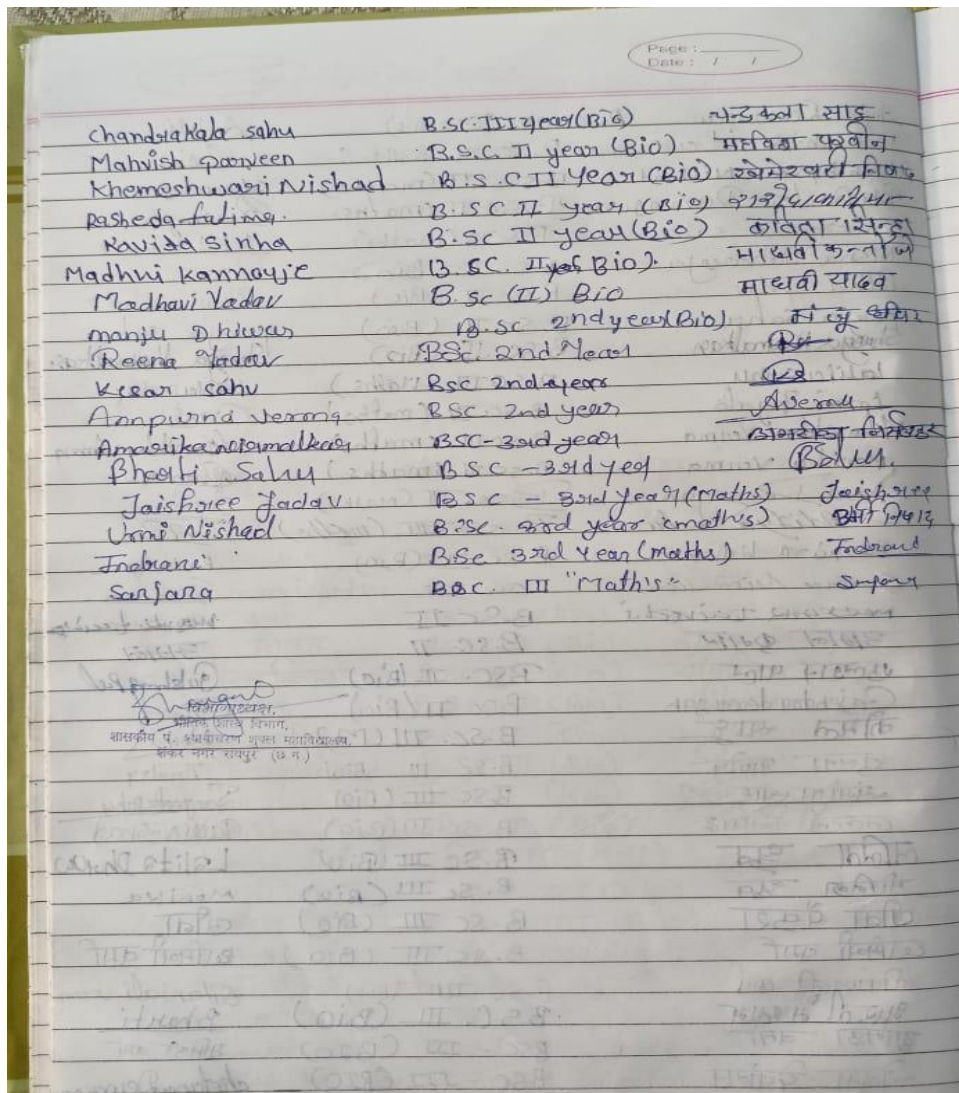 Page :
Date : / /
Chandrakala sahu B.Sc. III year (Bio) चन्द्रकला साहू
Mahvish parveen B.S.C. II year (Bio) महविश परवीन
Khemeshwari Nishad B.S.C II Year (Bio) खेमेश्वरी निषाद
Rasheda fatima. B.SC II year (Bio)
Kavita Sinha B.Sc II year (Bio) कविता सिन्हा
Madhvi Kannouje B.SC. II Bio) माधवी कन्नौजे
Madhavi Yadav B.sc (II) Bio माधवी यादव
manju Dhiwar B.sc 2nd year (Bio) मंजू धीवर
Reena Yadav BSc. 2nd Year
Kesar sahu Bsc 2nd year
Annpurna verma BSc 2nd year Averma
Amarika nirmalkar BSC-3rd year अमरीका निर्मलकर
Bharti Sahu BSC -3rd year BSahu.
Jaishree Yadav BSC - 3rd year (maths) Jaishree
Urmi Nishad B.Sc. 3rd year (maths) उर्मी निषाद
Indrani BSc 3rd Year (maths) Indrani
Sanjana BSC. III "Maths"
विभागाध्यक्ष,
भौतिक शास्त्र विभाग,
शासकीय पं. श्यामाचरण शुक्ल महाविद्यालय,
शंकर नगर रायपुर (छ.ग.)